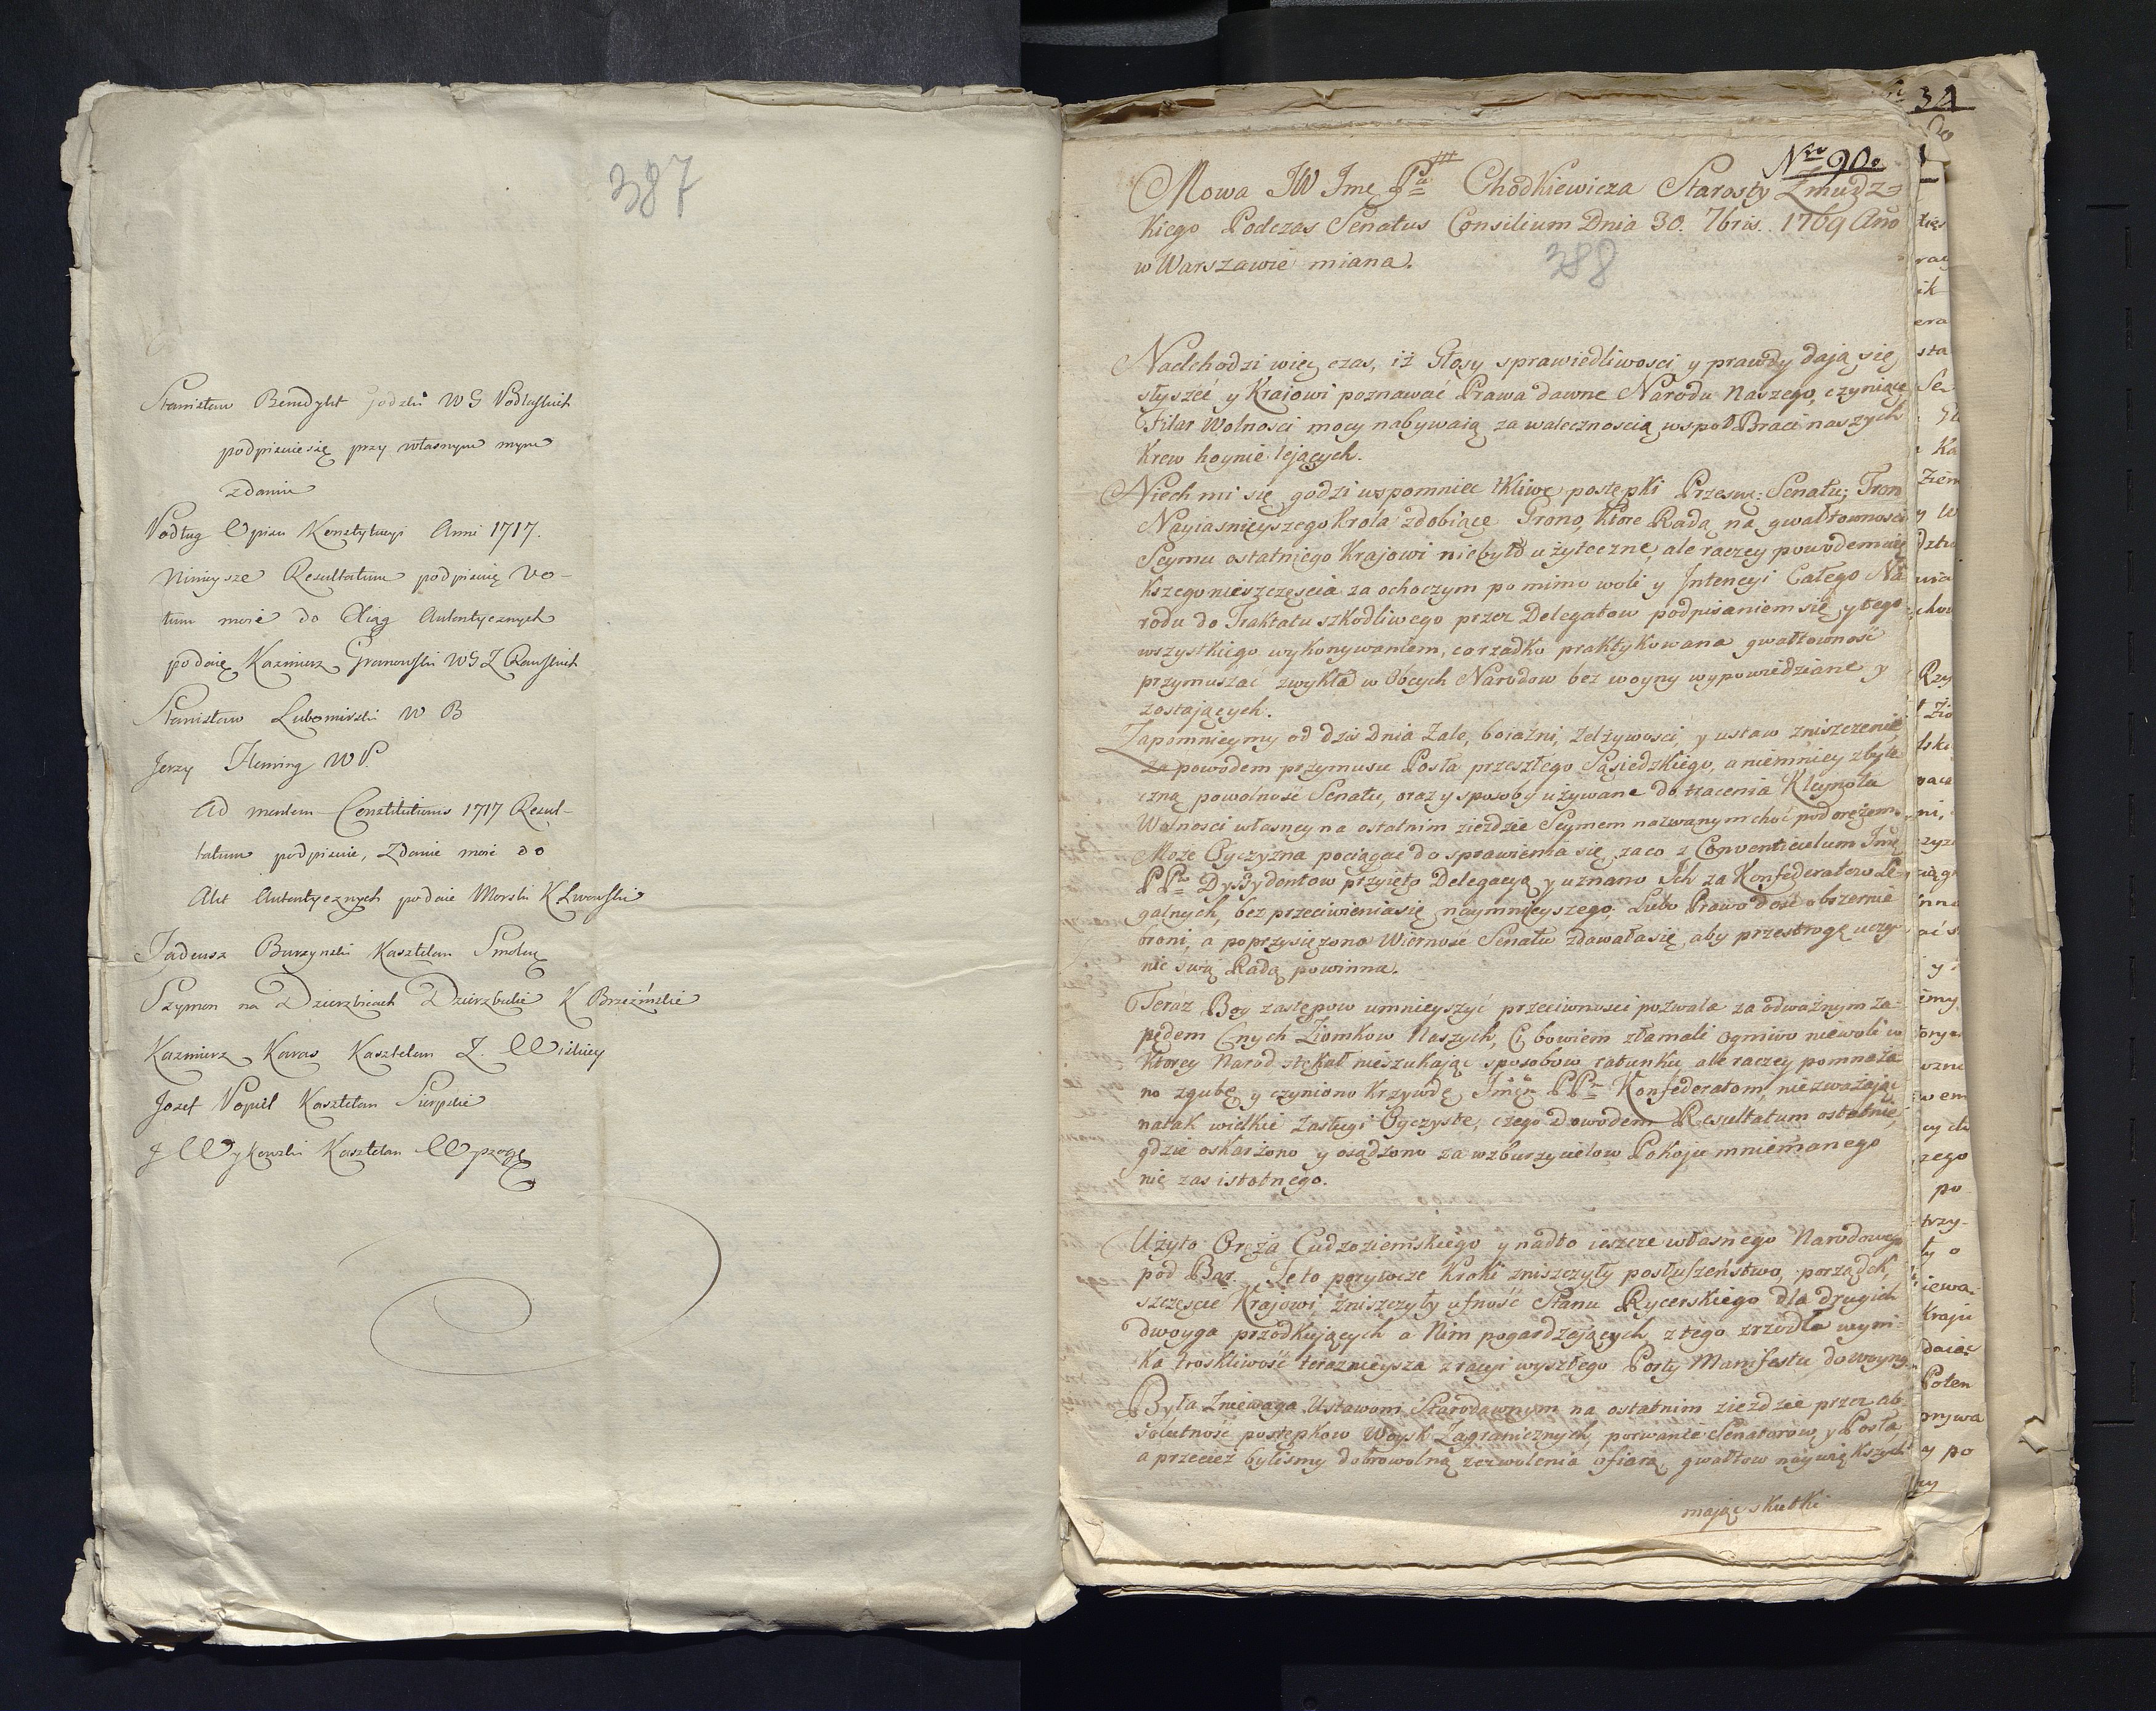 387
Stanisław Benedykt Godzki WG Podlaskich
podpisuie się przy własnym mym
zdaniu
Podług Opisu Konstytucyi Anni 1717.
Ninieysze Resultatum podpisuię Vo-
tum moie do Xiąg Autentycznych
podaię Kazimierz Granowski WGZ Rawskich
Stanisław Lubomirski W B
Jerzy Fleming WP.
Ad mentem Constitutionis 1717 Resul-
tatum podpisuie, Zdanie moie do
Akt Autentycznych podaie Morski K Lwowski
Tadeusz Burzynski Kasztelan Smolen
Szymon na Dzierzbicach Dzierzbicki K Brzeźiński
Kazimierz Karas Kasztelan Z. Wislicy
Jozef Popiel Kasztelan Sierpski
J Wykowski Kasztelan Wyszog
34
Nro 90.
Mowa JW Jmę Pa Chodkiewicza Starosty Zmudz-
kiego Podczas Senatus Consilium Dnia 30. 7bris. 1769 Ano
w Warszawie miana.
388
Nadchodzi więc czas, iż Głosy sprawiedliwosci y prawdy dają się
słyszeć y Krajowi poznawać Prawa dawne Narodu Naszego, czyniące
Filar Wolnosci mocy nabywaią za walecznoscią wspoł Braci naszych
Krew hoynie lejących.
Niech mi się godzi wspomnieć tkliwe postępki Przesw: Senatu; Tron
Nayiasnieyszego Króla zdobiące Grono, ktore Radą na gwałtownosci
Seymu ostatniego Krajowi niebyło użyteczne, ale raczey powodem wię
kszego nieszczęscia za ochoczym po mimo woli y Intencyi Całego Na
rodu do Traktatu szkodliwego przez Delegatow podpisaniem się y tego
wszystkiego wykonywaniem, co rzadko praktykowana gwałtowność
przymuszać zwykła w Obcych Narodow bez woyny wypowiedziane y
zostających.
Zapomnieymy od dzis Dnia Zale, boiaźni, Zelżywosci, y ustaw zniszczenie
za powodem przymusu Posła przeszłego Sąsiedzkiego, a niemniey zbyte
czną powolność Senatu, oraz y sposoby używane do tracenia Kleynotu
Wolnosci własney na ostatnim zieździe Seymem nazwanym choć pod orężem.
Może Oyczyzna pociągać do sprawienia się, za co z Conventiculum Jmę
PPw Dyssydentow przyięto Delegacyą y uznano Ich za Konfederatow Le-
galnych, bez przeciwienia się naymnieyszego. Lubo Prawo dość obszernie
broni, a poprzysięzona Wierność Senatu zdawała się, aby przestrogę uczy-
nić swą Radą powinna.
Teraz Bog zastępow umnieyszyć przeciwnosci pozwala za odważnym za-
pędem Cnych Ziomkow Naszych, Ci bowiem złamali Ogniwo niewoli w
ktorey Narod stękał nieszukając sposobow ratunku, ale raczey pomnaża
no zgubę y czyniono Krzywdę Jmcm PPm Konfederatom, niezważając
na tak wielkie Zasługi Oyczyste, czego Dowodem Resultatum ostatnie,
gdzie oskarżono y osądzono za wzburzycielow Pokoju mniemanego
nie zas istotnego.
Użyto Oręża Cudzoziemskiego y nadto ieszcze własnego Narodowego
pod Bar. Te to porywcze Kroki zniszczyły posłuszeństwo, porządek,
szczęscie Krajowi, zniszczyły ufność Stanu Rycerskiego dla drugich
dwoyga przodkujących a Nim pogardzających, z tego zrzodła wyni-
ka troskliwość terażnieysza z racyi wyszłego Porty Manifestu do woyny.
Była Zniewaga Ustawom Starodawnym na ostatnim zieździe przez ab-
solutność postępkow Woysk Zagranicznych, porwanie Senatorow, y Posła,
a przecież bylismy dobrowolną zezwolenia ofiarą, gwałtow naywiększych
mając skutki